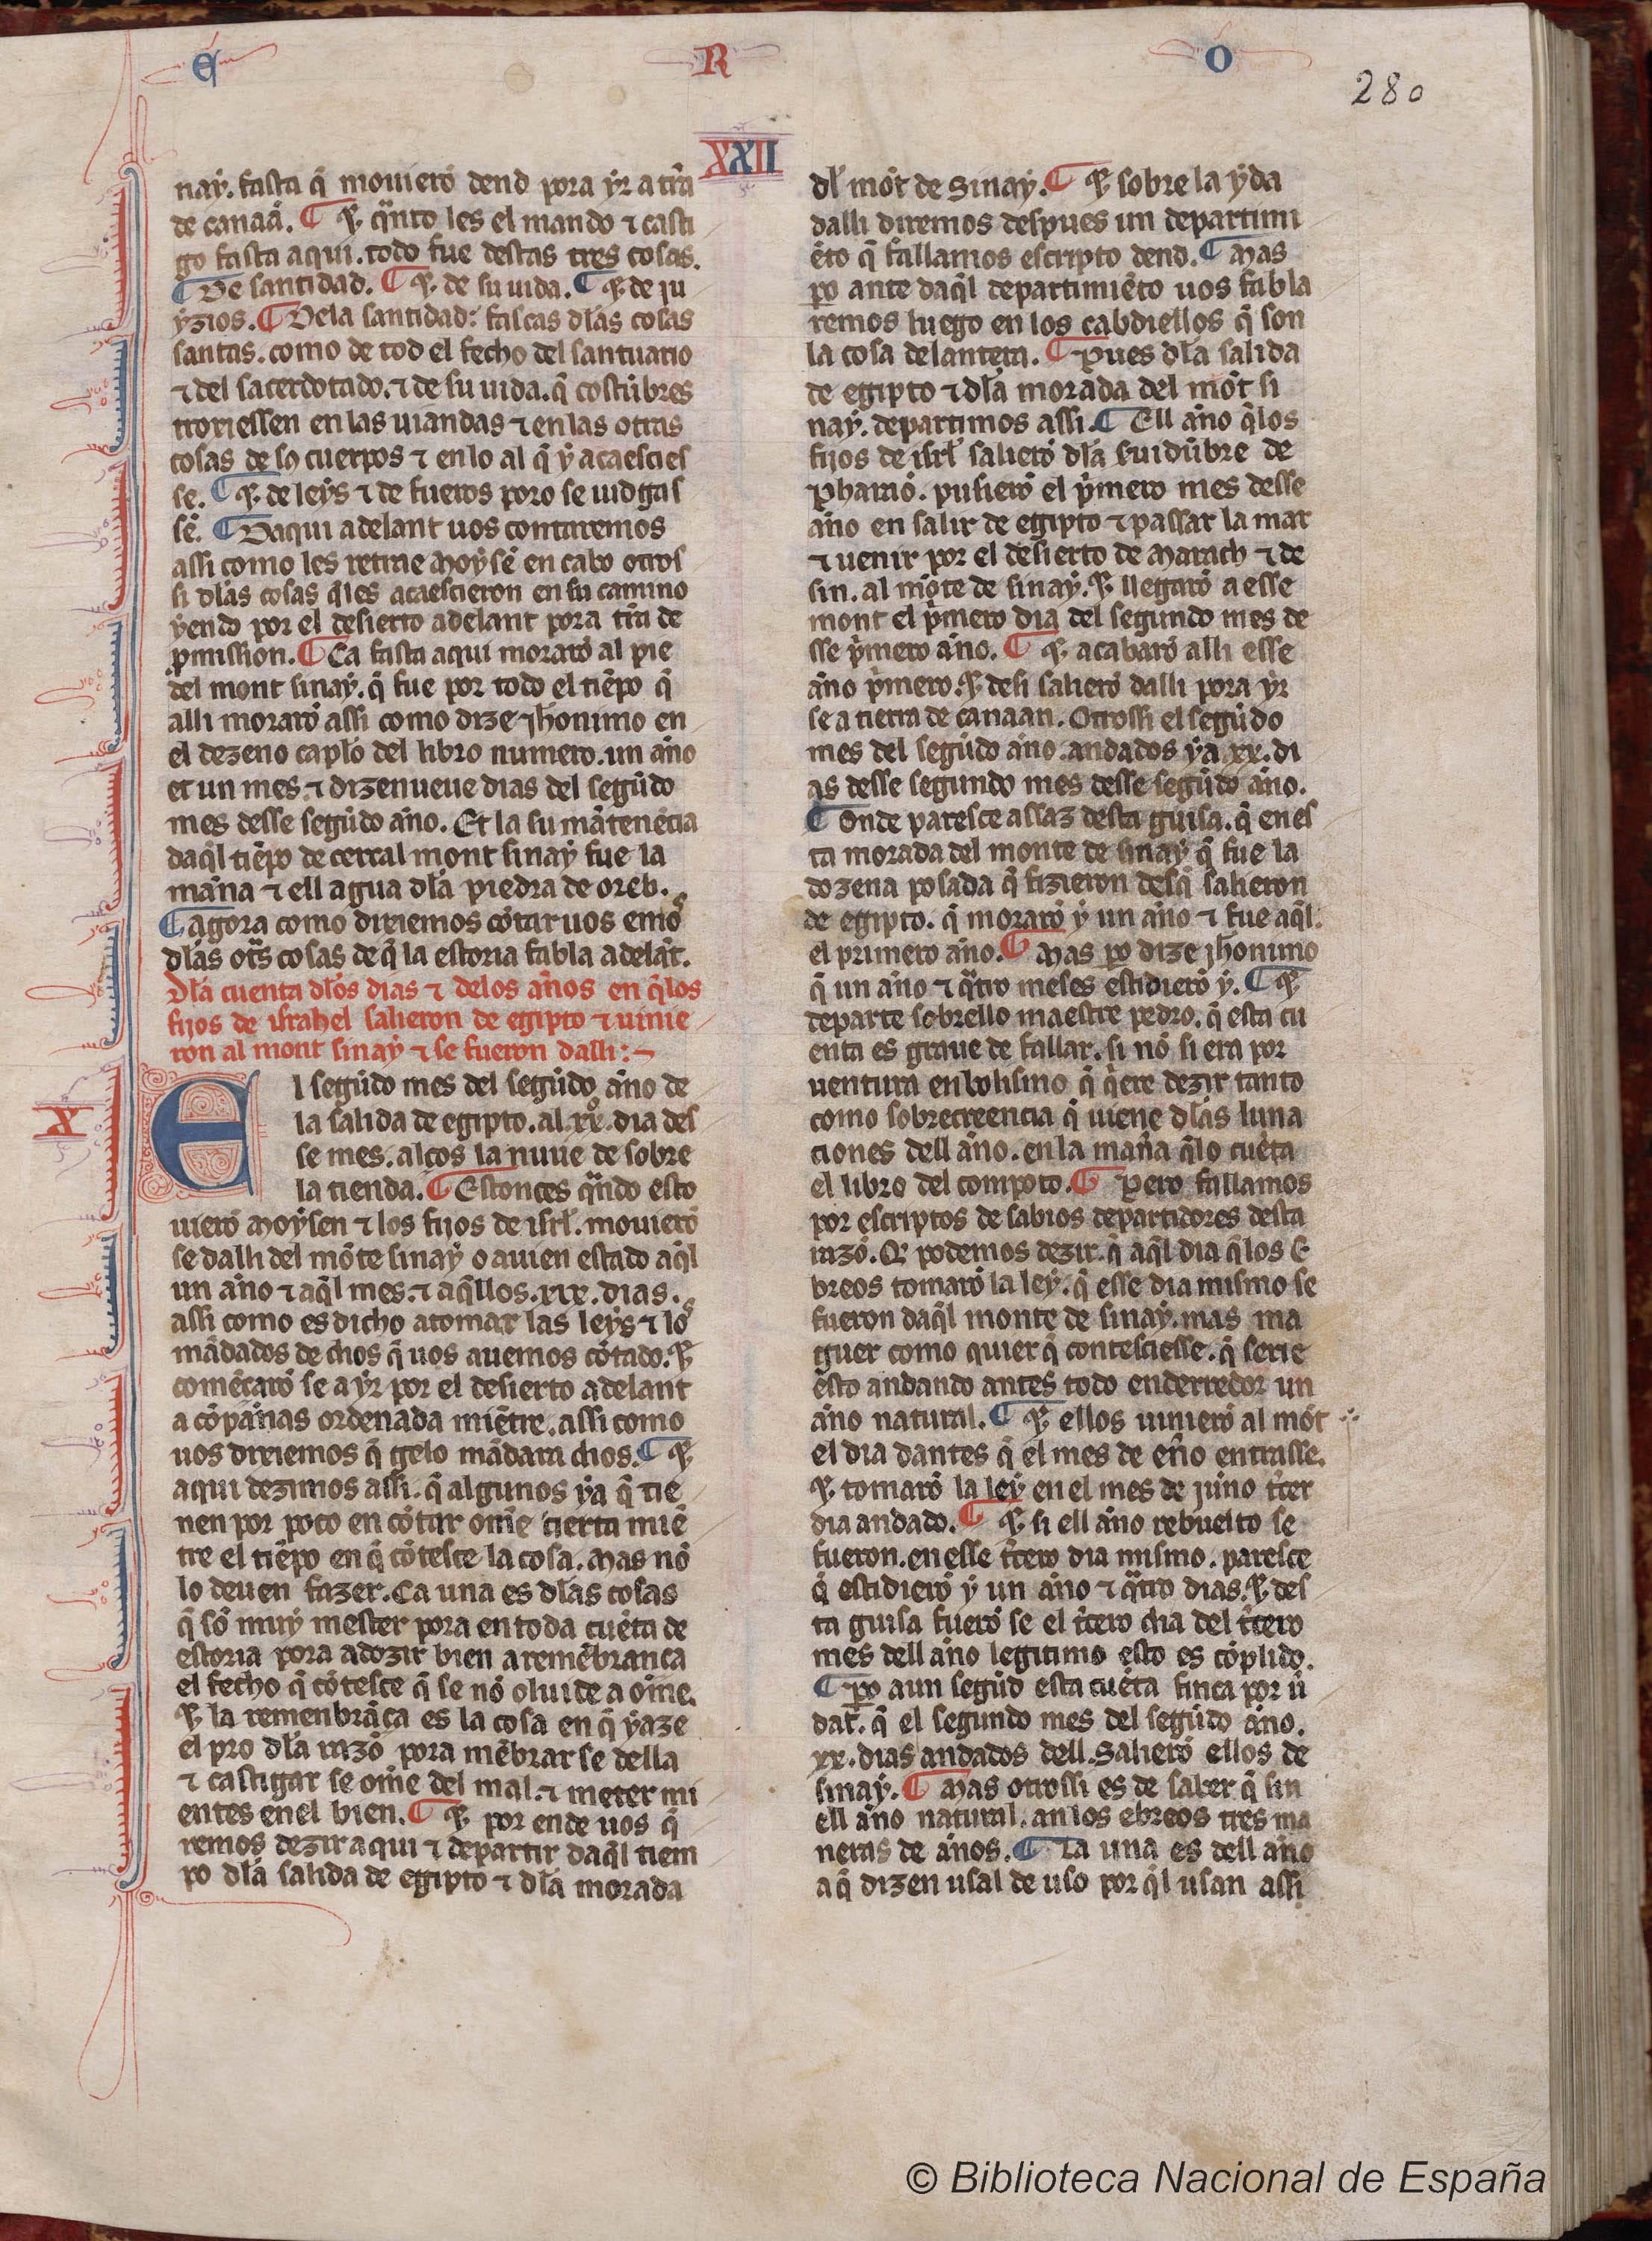 E R O
280
XXII
naẏ. fasta q̃ mouierõ dend pora ẏr a tr̃ra
de canaã. ¶ ⁊ qⁿnto les el mando ⁊ casti
go fasta aqui. todo fue destas tres cosas.
¶ De santidad. ¶ ⁊ de su uida. ¶ ⁊ de ju
ẏzios. ¶ Dela santidad: fascas dl̃as cosas
santas. como de tod el fecho del santuario
⁊ del sacerdotado. ⁊ de su uida. q̃ costũbres
trouiessen en las uiandas ⁊ en las otras
cosas de sꝯ cuerpos ⁊ en lo al q̃ ẏ acaescies
se. ¶ ⁊ de leẏs ⁊ de fueros poro se iudgas
sẽ. ¶ Daqui adelant uos contaremos
assi como les retine Moẏsẽ en cabo otros
si dl̃as cosas q̃les acaescieron en su camino
ẏendo por el desierto adelant pora tr̃ra de
ꝓmission. ¶ Ca fasta aqui morarõ al pie
del mont sinaẏ. q̃ fue por todo el tiẽpo q̃
alli morarõ assi como dize Jh̃onimo en
el dezeno capl̃o del libro numero. un año
et un mes. ⁊ dizenueue dias del segũdo
mes desse segũdo año. Et la su mãtenẽcia
daq̃l tiẽpo de cercal mont sinaẏ fue la
mãna ⁊ ell agua dl̃a piedra de oreb.
¶ agora como diriemos cõtar uos emos
dl̃as ot̃s cosas de q̃ la estoria fabla adelãt.
Dl̃a cuenta dl̃os dias ⁊ delos años en q̃los
fijos de israhel salieron de egipto ⁊ uinie
ron al mont sinaẏ ⁊ se fueron dalli:~
X
El segũdo mes del segũdo año de
la salida de egipto. al. xxº. dia des
se mes. alços la nuue de sobre
la tienda. ¶ Estonces qⁿndo esto
uierõ Moẏsen ⁊ los fijos de isrl̃. mouierõ
se dalli del mõte sinaẏ o auien estado aq̃l
un año ⁊ aq̃l mes. ⁊ aq̃llos. xix. dias.
assi como es dicho a tomar las leẏs ⁊ los
mãdados dechos q̃ uos auemos cõtado. ⁊
comẽçarõ se a ẏr por el desierto adelant
a cõpañas ordenada miẽtre. assi como
uos diriemos q̃ gelo mãdara dios. ¶ ⁊
aqui dezimos assi. q̃ algunos ẏa q̃ tie
nen por poco en cõtar om̃e cierta miẽ
tre el tiẽpo en q̃ cõtesce la cosa. Mas nõ
lo deuen fazer. Ca una es dl̃as cosas
q̃ sõ muẏ mester pora en toda cuẽta de
estoria pora adozir bien a remẽbrança
el fecho q̃ cõtesce q̃ se nõ oluide a om̃e.
⁊ la remenbrãça es la cosa en q̃ ẏaze
el pro dl̃a razõ pora mẽbrar se della
⁊ castigar se om̃e del mal. ⁊ meter mi
entes en el bien. ¶ ⁊ por ende uos q̃
remos dezir aqui ⁊ departir daq̃l tiem
po dl̃a salida de egipto ⁊ dl̃a morada
dl̃ mõt de Sinaẏ. ¶ ⁊ sobre la ẏda
dalli diremos despues un departimi
ẽto q̃ fallamos escripto dend. ¶ Mas
ꝑo ante daq̃l departimiẽto uos fabla
remos luego en los cabdiellos q̃ son
la cosa delantera. ¶ Pues dl̃a salida
de egipto ⁊ dl̃a morada del mõt si
naẏ. departimos assi. ¶ Ell año q̃los
fijos de isrl̃ salierõ dl̃a seruidũbre de
Pharaõ. pusierõ el p̃mero mes desse
año en salir de egipto ⁊ passar la mar
⁊ uenir por el desierto de Marach ⁊ de
sin. al mõte de sinaẏ. ⁊ llegarõ a esse
mont el p̃mero dia del segundo mes de
sse p̃mero año. ¶ ⁊ acabarõ alli esse
año p̃mero. ⁊ desi salierõ dalli pora ẏr
se a tierra de canaan. Otrossi el segũdo
mes del segũdo año. andados ẏa. xx. di
as desse segundo mes desse segũdo año.
¶ Onde paresce assaz desta guisa. q̃ en es
ta morada del monte de sinaẏ q̃ fue la
dozena posada q̃ fizieron desq̃ salieron
de egipto. q̃ morarõ ẏ un año ⁊ fue aq̃l.
el primero año. ¶ Mas ꝑo dize Jh̃onimo
q̃ un año ⁊ qⁿtro meses estidierõ ẏ. ¶ ⁊
departe sobrello maestre pedro. q̃ esta cu
enta es graue de fallar. si nõ si era por
uentura enbolismo q̃ q̃ere dezir tanto
como sobrecreencia q̃ uiene dl̃as luna
ciones dell año. en la mañа q̃lo cuẽta
el libro del compoto. ¶ Pero fallamos
por escriptos de sabios departidores desta
razõ. Q̃ podemos dezir. q̃ aq̃l dia q̃los E
breos tomarõ la leẏ. q̃ esse dia mismo se
fueron daq̃l monte de sinaẏ. mas ma
guer como quier q̃ contesciesse. q̃ serie
esto andando antes todo enderredor un
año natural. ¶ ⁊ ellos uinierõ al mõt
el dia dantes q̃ el mes de eñо entrasse.
⁊ tomarõ la leẏ en el mes de junо t̃cer
dia andado. ¶ ⁊ si ell año rebuelto se
fueron. en esse t̃cero dia mismo. paresce
q̃ estidierõ ẏ un año ⁊ qⁿtro dias. ⁊ des
ta guisa fuerõ se el t̃cero dia del t̃cero
mes dell año legitimo esto es cõplido.
¶ ꝑo aun segũd esta cuẽta finca por ũ
dat̃. q̃ el segundo mes del segũdo año.
xx. dias andados dell. Salierõ ellos de
sinaẏ. ¶ Mas otrossi es de saber q̃ sin
ell año natural. an los ebreos tres ma
neras de años. ¶ La una es dell año
a q̃ dizen usal de uso por q̃l usan assi
© Biblioteca Nacional de España